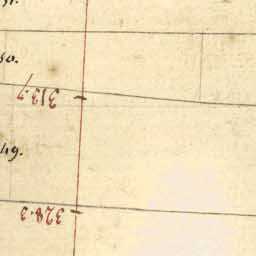 50.
313.7
49.
328.2